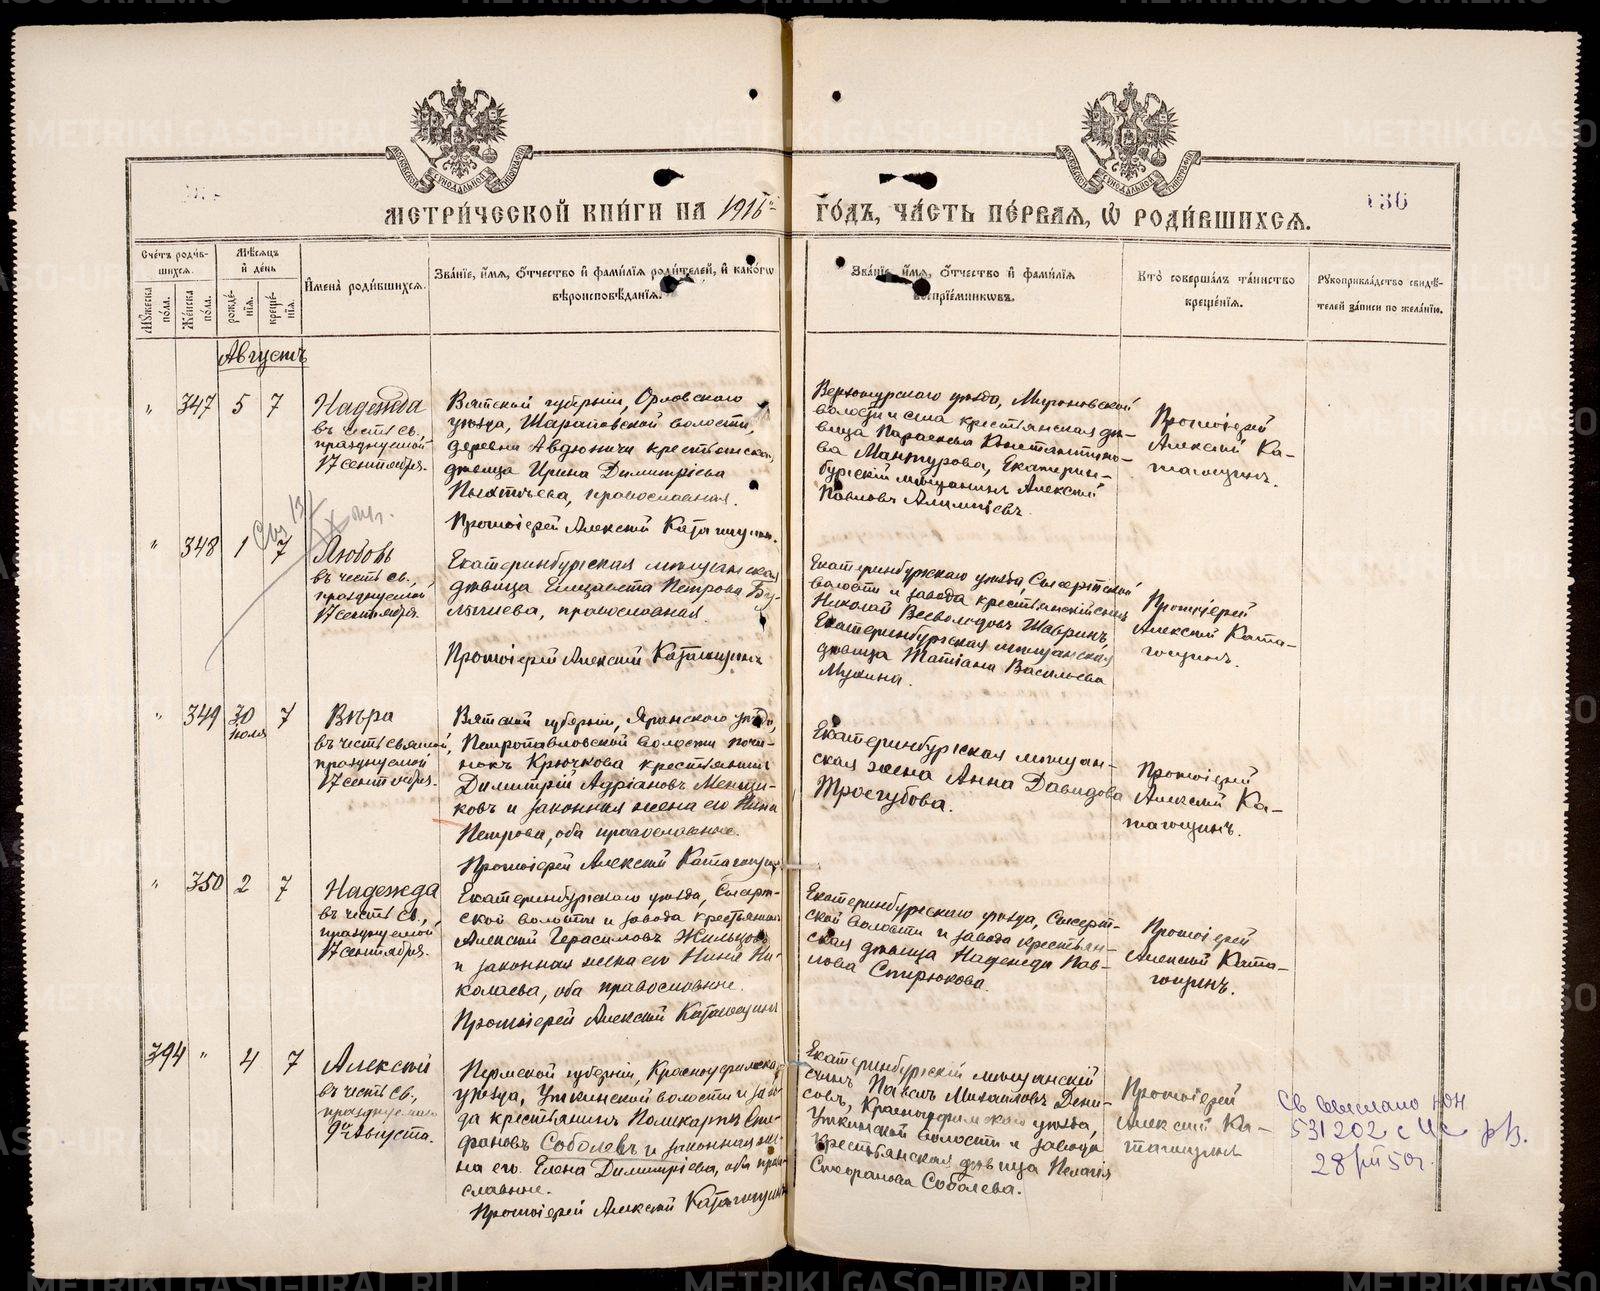 МЕТРИ́ЧЕСКОЙ КНИ́ГИ НА 1916
ГО́ДЪ, ЧА́СТЬ ПЕ́РВАЯ, Ѡ РОДИ́ВШИХСЯ.
136
Сче́тъ роди́в-
шихся.
Му́жеска
по́ла.
Же́нска
по́ла.
Мѣ́сяцъ
и҆ де́нь
рожде́-
нїя.
креще́-
нїя.
И҆мена̀ роди́вшихся.
Зва́нїе, и҆́мя, ѻ҆́тчество и҆ фами́лїя роди́телей, и҆ како́гѡ
вѣроисповѣ́данїя.
Зва́нїе, и҆́мя, ѻ҆́тчество и҆ фами́лїя
воспрїе́мникѡвъ.
Кто̀ соверша́лъ та́инство
креще́нїя.
Рꙋкоприкла́дство свидѣ́-
телей за́писи по жела́нїю.
Августъ
" 347 5 7
Надежда
въ честь св.,
празднуемой
17 сентября.
Вятской губерніи, Орловскаго
уѣзда, Шараповской волости,
деревни Авдюничи крестьянская
дѣвица Ирина Димитріева
православная.
Протоіерей Алексій Катагощинъ.
Верхотурскаго уѣзда, Мугайской
волости и села крестьянская дѣ-
вица Параскева Константино-
ва Мантурова, Екатерин-
бургскій мѣщанинъ Алексій
Павловъ
Протоіерей
Алексій Ка-
тагощинъ.
" 348 1 7
Любовь
въ честь св.,
празднуемой
17 сентября.
Екатеринбургская мѣщанская
дѣвица Елизавета Петрова Бу-
лычева, православная.
Протоіерей Алексій Катагощинъ
Екатеринбургскаго уѣзда, Сысертской
волости и завода крестьянскій сынъ
Николай Всеволодовъ Шавринъ,
Екатеринбургская мѣщанская
дѣвица Татіана Васильева
Мухина.
Протоіерей
Алексій Ката-
гощинъ.
" 349 30
іюля 7
Вѣра
въ честь святой,
празднуемой
17 сентября.
Вятской губерніи, Яранскаго уѣзда,
Петропавловской волости почи-
нокъ Крючкова крестьянинъ
Димитрій Адріановъ Менщи-
ковъ и законная жена его Нина
Петрова, оба православные.
Протоіерей Алексій Катагощинъ
Екатеринбургская мѣщан-
ская жена Анна Давидова
Троегубова.
Протоіерей
Алексій Ка-
тагощинъ.
" 350 2 7
Надежда
въ честь св.,
празднуемой
17 сентября.
Екатеринбургскаго уѣзда, Сысерт-
ской волости и завода крестьянинъ
Алексій Герасимовъ Жильцовъ
и законная жена его Нина Ни-
колаева, оба православные.
Протоіерей Алексій Катагощинъ
Екатеринбургскаго уѣзда, Сысерт-
ской волости и завода крестьян-
ская дѣвица Надежда Пав-
лова Стрюкова.
Протоіерей
Алексій Ката-
гощинъ.
394 " 4 7
Алексій
въ честь св.,
празднуемаго
9го Августа.
Пермской губерніи, Красноуфимскаго
уѣзда, Уткинской волости и заво-
да крестьянинъ Поликарпъ Епи-
фановъ Соболевъ и законная же-
на его Елена Димитріева, оба право-
славные.
Протоіерей Алексій Катагощинъ
Екатеринбургскій мѣщанскій
сынъ Павелъ Михаиловъ Дени-
совъ, Красноуфимскаго уѣзда,
Уткинской волости и завода
крестьянская дѣвица Пелагія
Соболева.
Протоіерей
Алексій Ка-
тагощинъ
Св выслано ЮН
531202
28/III 50г.
METRIKI.GASO-URAL.RU